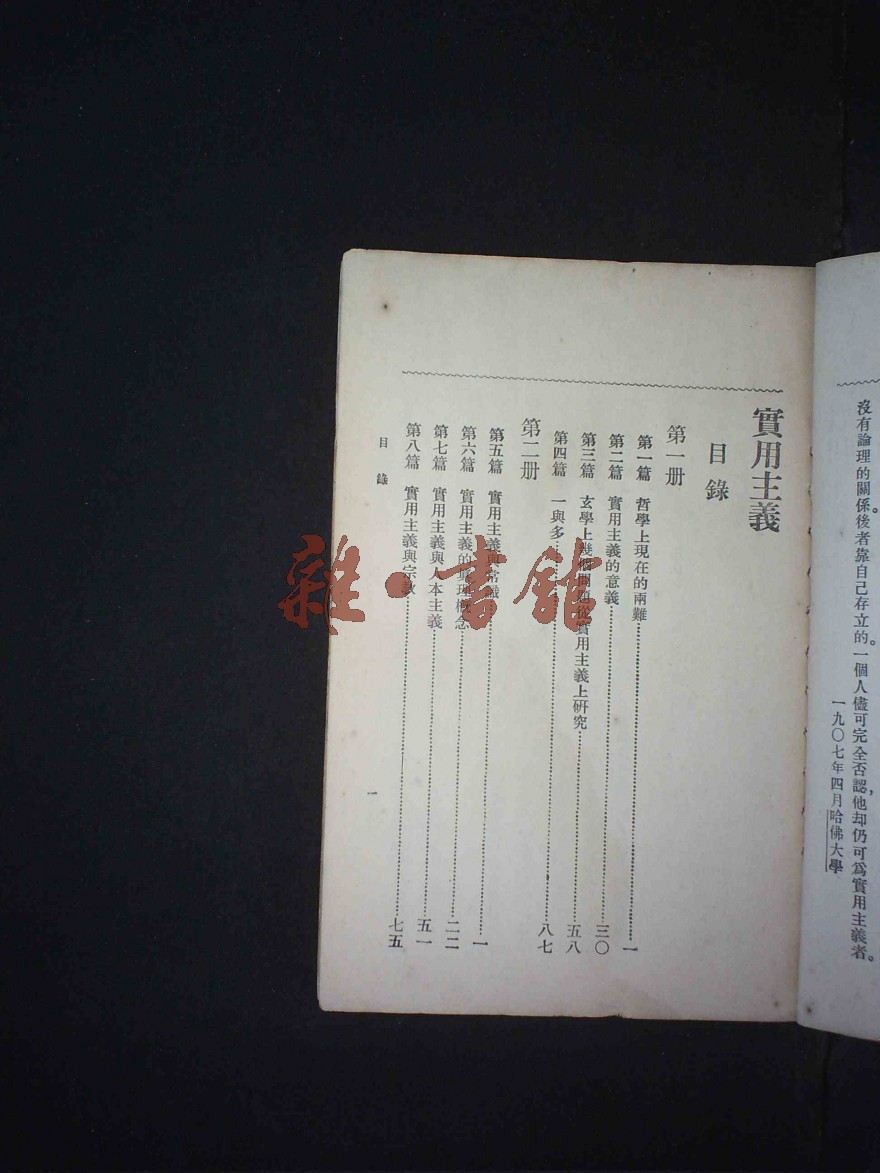 沒有論理的關係。後者靠自己存立的。一個人儘可完全否認,他却仍可爲實用主義者。
一九〇七年四月哈佛大學
實用主義
目錄
第一册
第一篇 哲學上現在的兩難……一
第二篇 實用主義的意義……三〇
第三篇 玄學上幾個問題從實用主義上研究……五八
第四篇 一與多……八七
第二册
第五篇 實用主義與常識……一
第六篇 實用主義的眞理概念……二二
第七篇 實用主義與人本主義……五一
第八篇 實用主義與宗教……七五
目錄
一
雜·書館